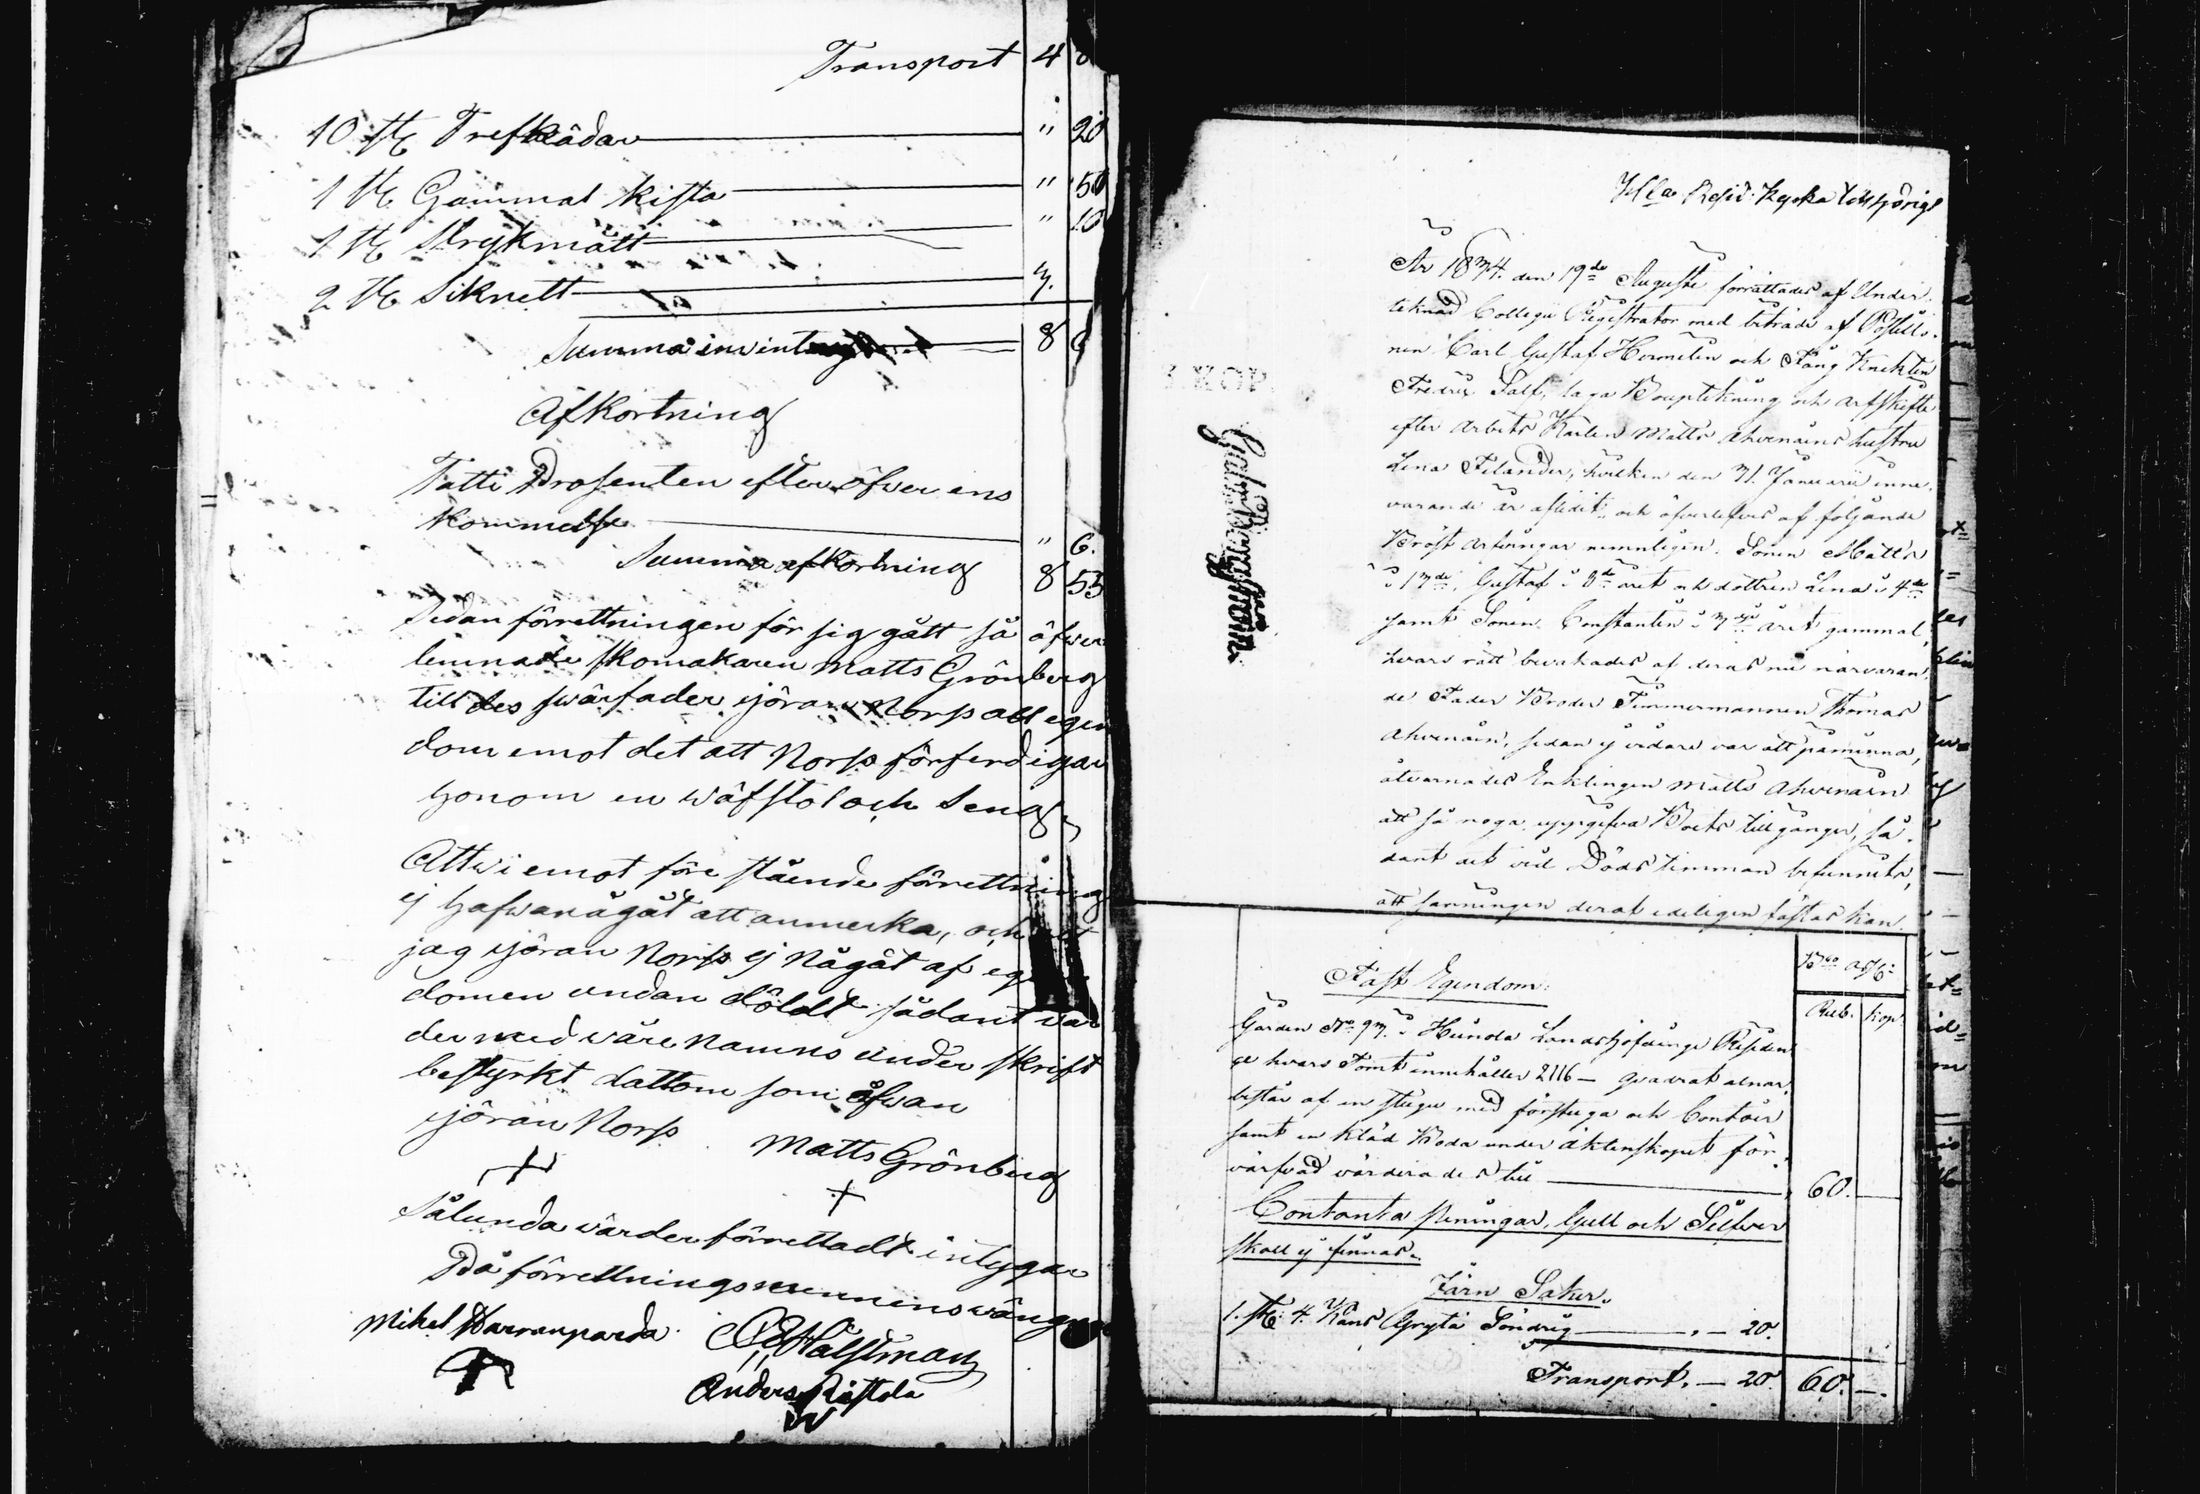 Transport 4
10 st: Trefkädar " 20
1 st: Gammal kista " 50
1 st: Strykmått " 10
2 st: Siknett 3.
Summa inventarium 8 6
Afkortning
Fatti Prosenten efter öfver ens
kommelse " 6.
Summa afkortning 8 55
Sedan förrettningen för sig gått så öfver
lemnade skomakaren Matts Grönberg
till des swärfader ijöran Norss all egen
dom emot det att Norss förferdigar
honom en wäfstol och seng,
Att wi emot före stående förrettning
ej hafwa någåt att anmerka, och att
jag ijöran Norss ej någåt af egen
domen undan döldt sådant var
der med wåre namns under skrift
bestyrkt dattom som åfwan
ijöran Norss Matts Grönberg
Sålunda wärder förrettadt intygar
På förrettningsmennens wängnar
Mikel Harranparda Hallstman
Anders Ristola
Resid: Kyrka tillhörigt
År 1834. den 19de Augusti förrättades af Under
teknad Collegii Registrator med biträde af Postillio-
nen Carl Gustaf Hermelin och Fång Knekten
Fredric Salf, laga Bouptekning och arfskifte
efter Arbets Karlen Matts Ahvenains hustru
Lena Felander, hvilken den 31. Januarii inne-
varande år aflidit, och öfverlefves af följande
Bröst arfvingar nemnligen. Sonen Matts
i 13de, Gustaf i 8de året och dottren Lena i 4de
samt Sonen Constantin i 3dje året gammal,
hvars rätt bevakades af deras nu närvaran-
de Fader Broder Timmermannen Thomas
Ahvenain, sedan ej vidare var att påminna,
åtvarnades Enklingen Matts Ahvenain
att så noga uppgifva Boets tillgånger, så-
dant det vid Döds timman befunnits,
att sanningen derat edeligen fästas kan.
GustafBergman
Bco Ass:
Rub. Kop.
Fast Egendom:
Gården No 93. i Hämda Landshöfdinge Residen
ge hvars Tomt innehåller 2116 — qvadrat alnar
består af en stuga med förstuga och Contoir
samt en kläd Boda under äktenskapet för-
värfvad värderades till 60. —
Contanta Peningar, Gull och Silfver
skall ej finnas.
Järn Saker.
1. st: 4. Kans Gryta Söndrig — 20.
Transport. — 20. 60. —.